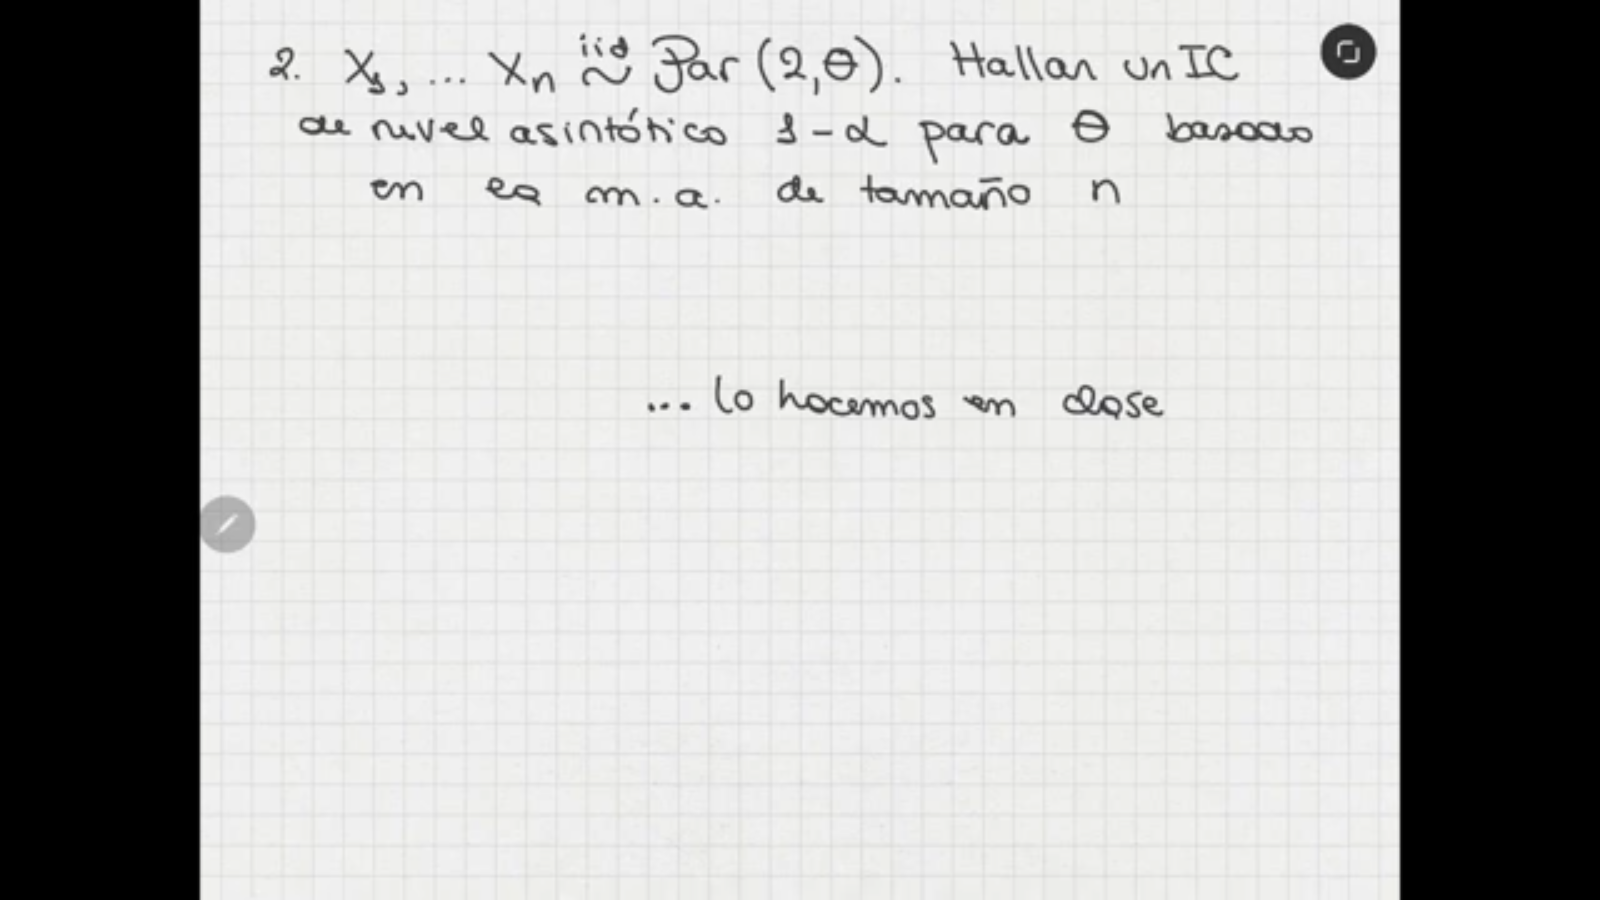 2. X₁, ... Xₙ iid ~ Par (2,θ). Hallar un IC
de nivel asintótico 1-α para θ basado
en la m.a. de tamaño n
... lo hacemos en clase